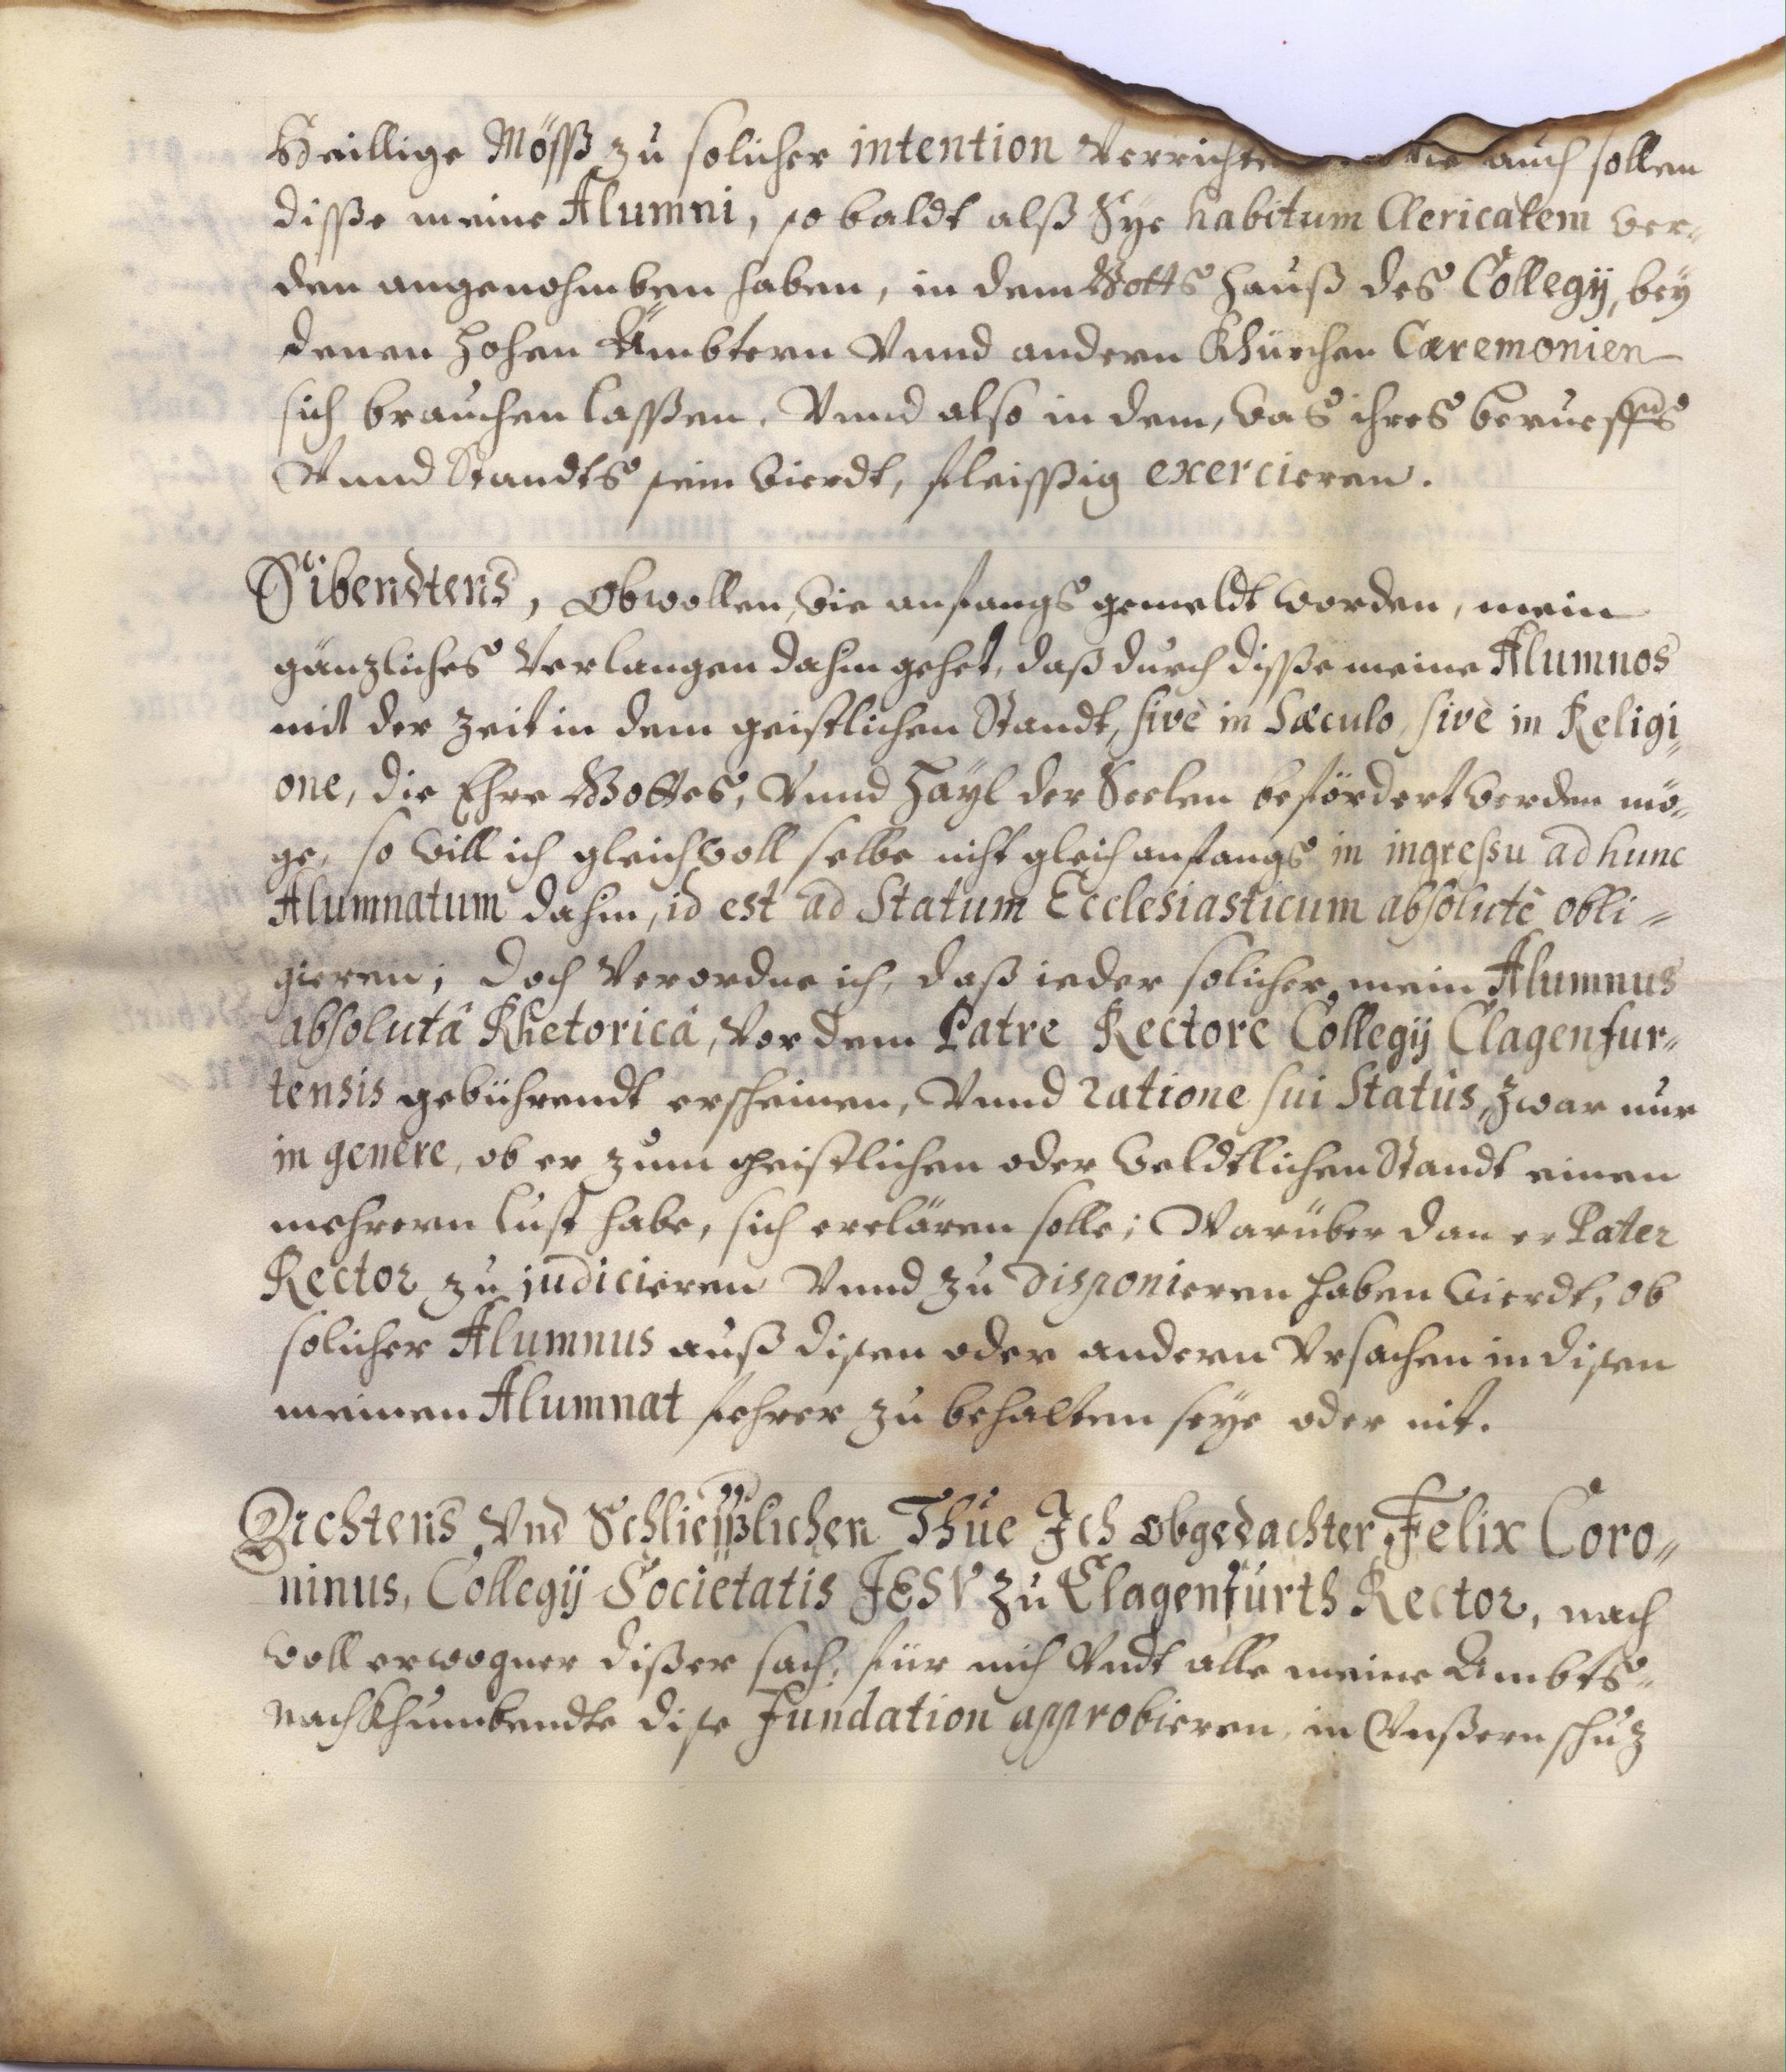 Heillige Mösß zu solicher intention Verrichte auch sollen
disse meine Alumni, so baldt alß Sye habitum Clericalem wer„
den angenohmben haben, in dem Gotts Hauß des Collegij, bey
denen Hohen Ämbtern Vnnd andern Khürchen Cæremonien
sich brauchen lassen. Vnnd also in dem, was ihres berueffs
Vnnd Standts sein wierdt, fleissig exercieren.
Sibendtens, Obwollen, wie anfangs gemeldt worden, mein
gänzliches Verlangen dahin gehet, daß durch disse meine Alumnos
mit der Zeit in dem geistlichen Standt, sivè in Sæculo, sivè in Religi„
one, die Ehre Gottes, Vnnd Hayl der Seelen befördert werden mö„
ge, so will ich gleichwoll selbe nicht gleich anfangs in ingressu ad hunc
Alumnatum dahin, id est ad Statum Ecclesiasticum absolutè obli„
gieren; Doch Verordne ich, daß ieder solicher mein Alumnus
absolutâ Rhetoricâ, Vor dem Patre Rectore Collegij Clagenfur„
tensis gebührendt erscheinen, Vnnd ratione sui Statûs, zwar nur
in genere, ob er zum geistlichen oder weldtlichen Standt einen
mehrern lust habe, sich erclären solle; Warüber dan er Pater
Rector zu judicieren Vnnd zu disponieren haben wierdt, ob
solicher Alumnus auß disen oder andern Vrsachen in disen
meinen Alumnat fehrer zu behalten seye oder nit.
Achtens Vnd Schliesslichen Thue Ich obgedachter Felix Coro„
ninus, Collegij Societatis JESV zu Clagenfurth Rector, nach
woll erwogner dißer sach, für mich Vndt alle meine Ambts„
nachkhumbendte dise Fundation approbieren, in Vnßern schuz